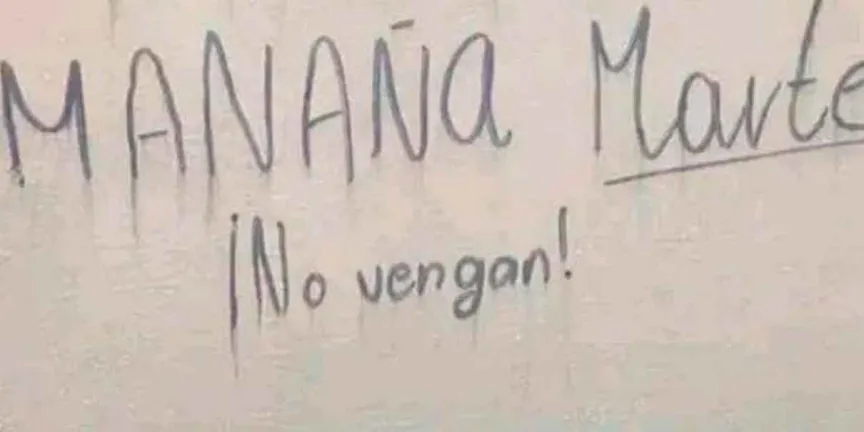 MAÑANA Marte
¡No vengan!